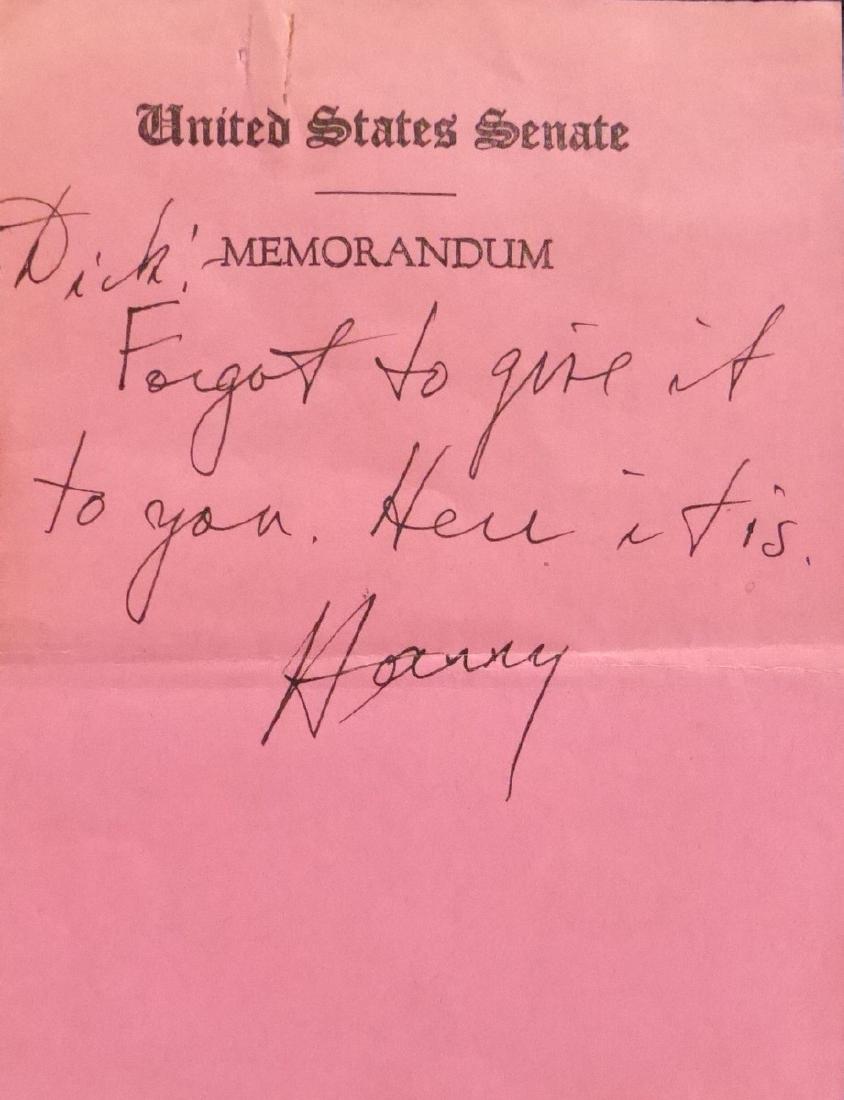 United States Senate
MEMORANDUM
Dick!
Forgot to give it
to you. Here it is.
Harry